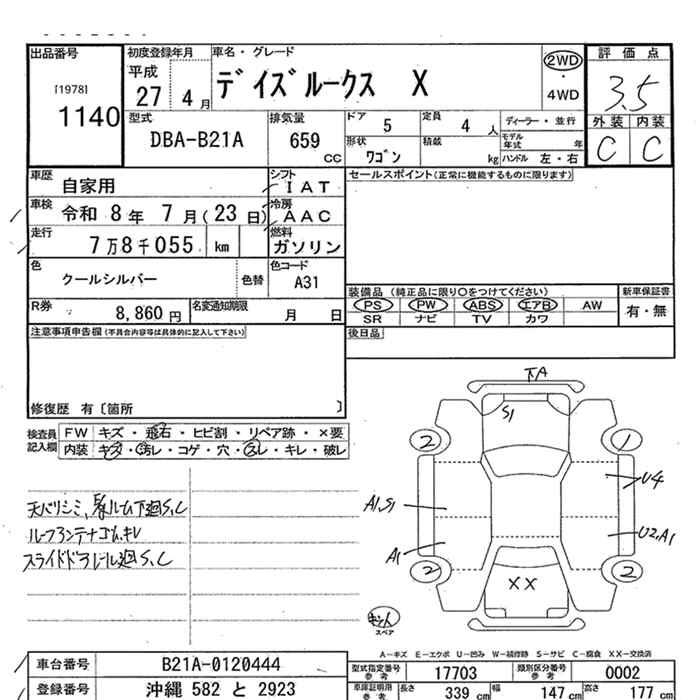 出品番号
[1978]
1140
初度登録年月
平成
27 4月
車名・グレード
デイズルークス X
2WD
・
4WD
評価点
3.5
外装 内装
C C
型式
DBA-B21A
排気量
659
CC
ドア 5
定員 4 人
ディーラー・並行
モデル年式 年
形状
ワゴン
積載
kg
ハンドル 左・右
車歴
自家用
シフト
I A T
セールスポイント(正常に機能するものに限ります)
車検 令和 8年 7月(23日)
冷房
A A C
走行
7万8千055 km
燃料
ガソリン
色
クールシルバー
色替
色コード
A31
装備品 (純正品に限り○をつけてください)
新車保証書
PS PW ABS エアB AW
有・無
SR ナビ TV カワ
R券
8,860 円
名変通知期限
月 日
後日品
注意事項申告欄(不具合内容等は具体的に記入して下さい)
修復歴 有〔箇所 〕
検査員記入欄
FW キズ・飛石・ヒビ割・リペア跡・×要
内装 キズ・汚レ・コゲ・穴・スレ・キレ・破レ
ルーフアンテナゴムキレ
スライドドアレール廻S,C
下A
S1
2
1
U4
A1,S1
U2,A1
A1
2
2
XX
スペア
A-キズ E-エクボ U-凹み W-補修跡 S-サビ C-腐食 XX-交換済
車台番号
B21A-0120444
型式指定番号 参考
17703
類別区分番号 参考
0002
登録番号
沖縄 582 と 2923
車庫証明用 参考
長さ 339 cm
幅 147 cm
高さ 177 cm